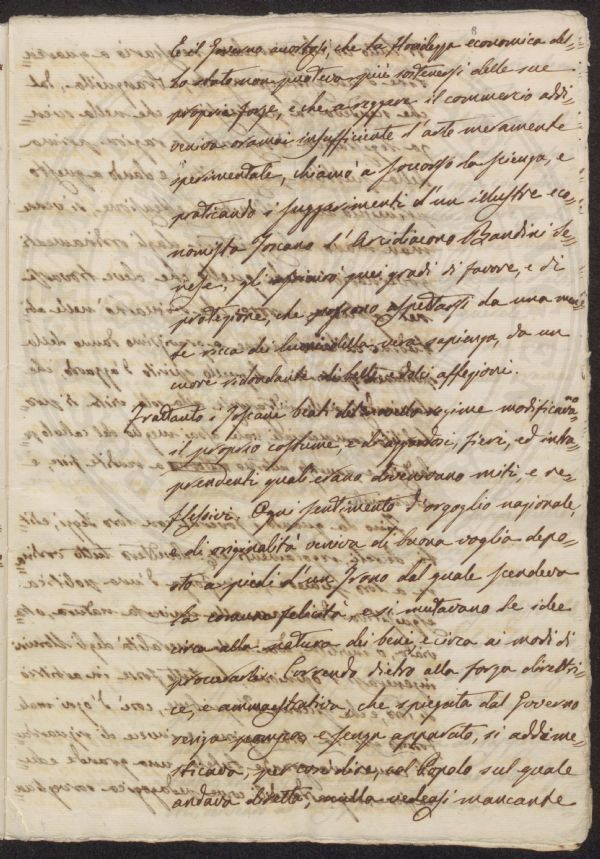 E il Governo avvedutosi, che la floridezza economica del-
lo stato non poteva più sostenersi delle sue
proprie forze, e che a reggere il commercio addi-
veniva oramai insufficiente l'arte meramente
sperimentale, chiamò a soccorso la scienza, e
praticando i suggerimenti d'un illustre eco-
nomista Toscano l'Arcidiacono Bandini Se-
nese, gli aprirono quei gradi di favore, e di
protezione, che possono aspettarsi da una men-
te ricca dei lumi della vera sapienza, da un
cuore ridondante di belle, e dolci affezioni.
Trattanto i Toscani beati del nuovo regime modificavano
il proprio costume, e di sdegnosi, fieri, ed intra-
prendenti quali erano divenivano miti, e re-
flessivi. Ogni sentimento d'orgoglio nazionale,
e di originalità veniva di buona voglia depo-
sto a piedi d'un Trono dal quale scendeva
la comune felicità, e si mutavano le idee
circa alla natura dei beni, e circa ai modi di
procurarli. Correndo dietro alla forza direttri-
ce, e ammaestrativa, che spiegata dal Governo
senza pompa, e senza apparato, si addime-
sticava, per così dire, col Popolo sul quale
andava diretta, nulla vedeasi mancante